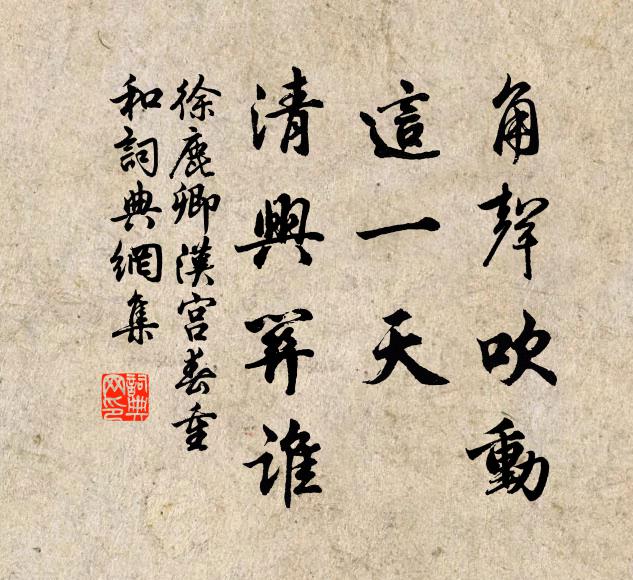 角聲吹動
這一天
清興羿誰
徐鹿卿漢宮春重
和詞典網集
詞典網印